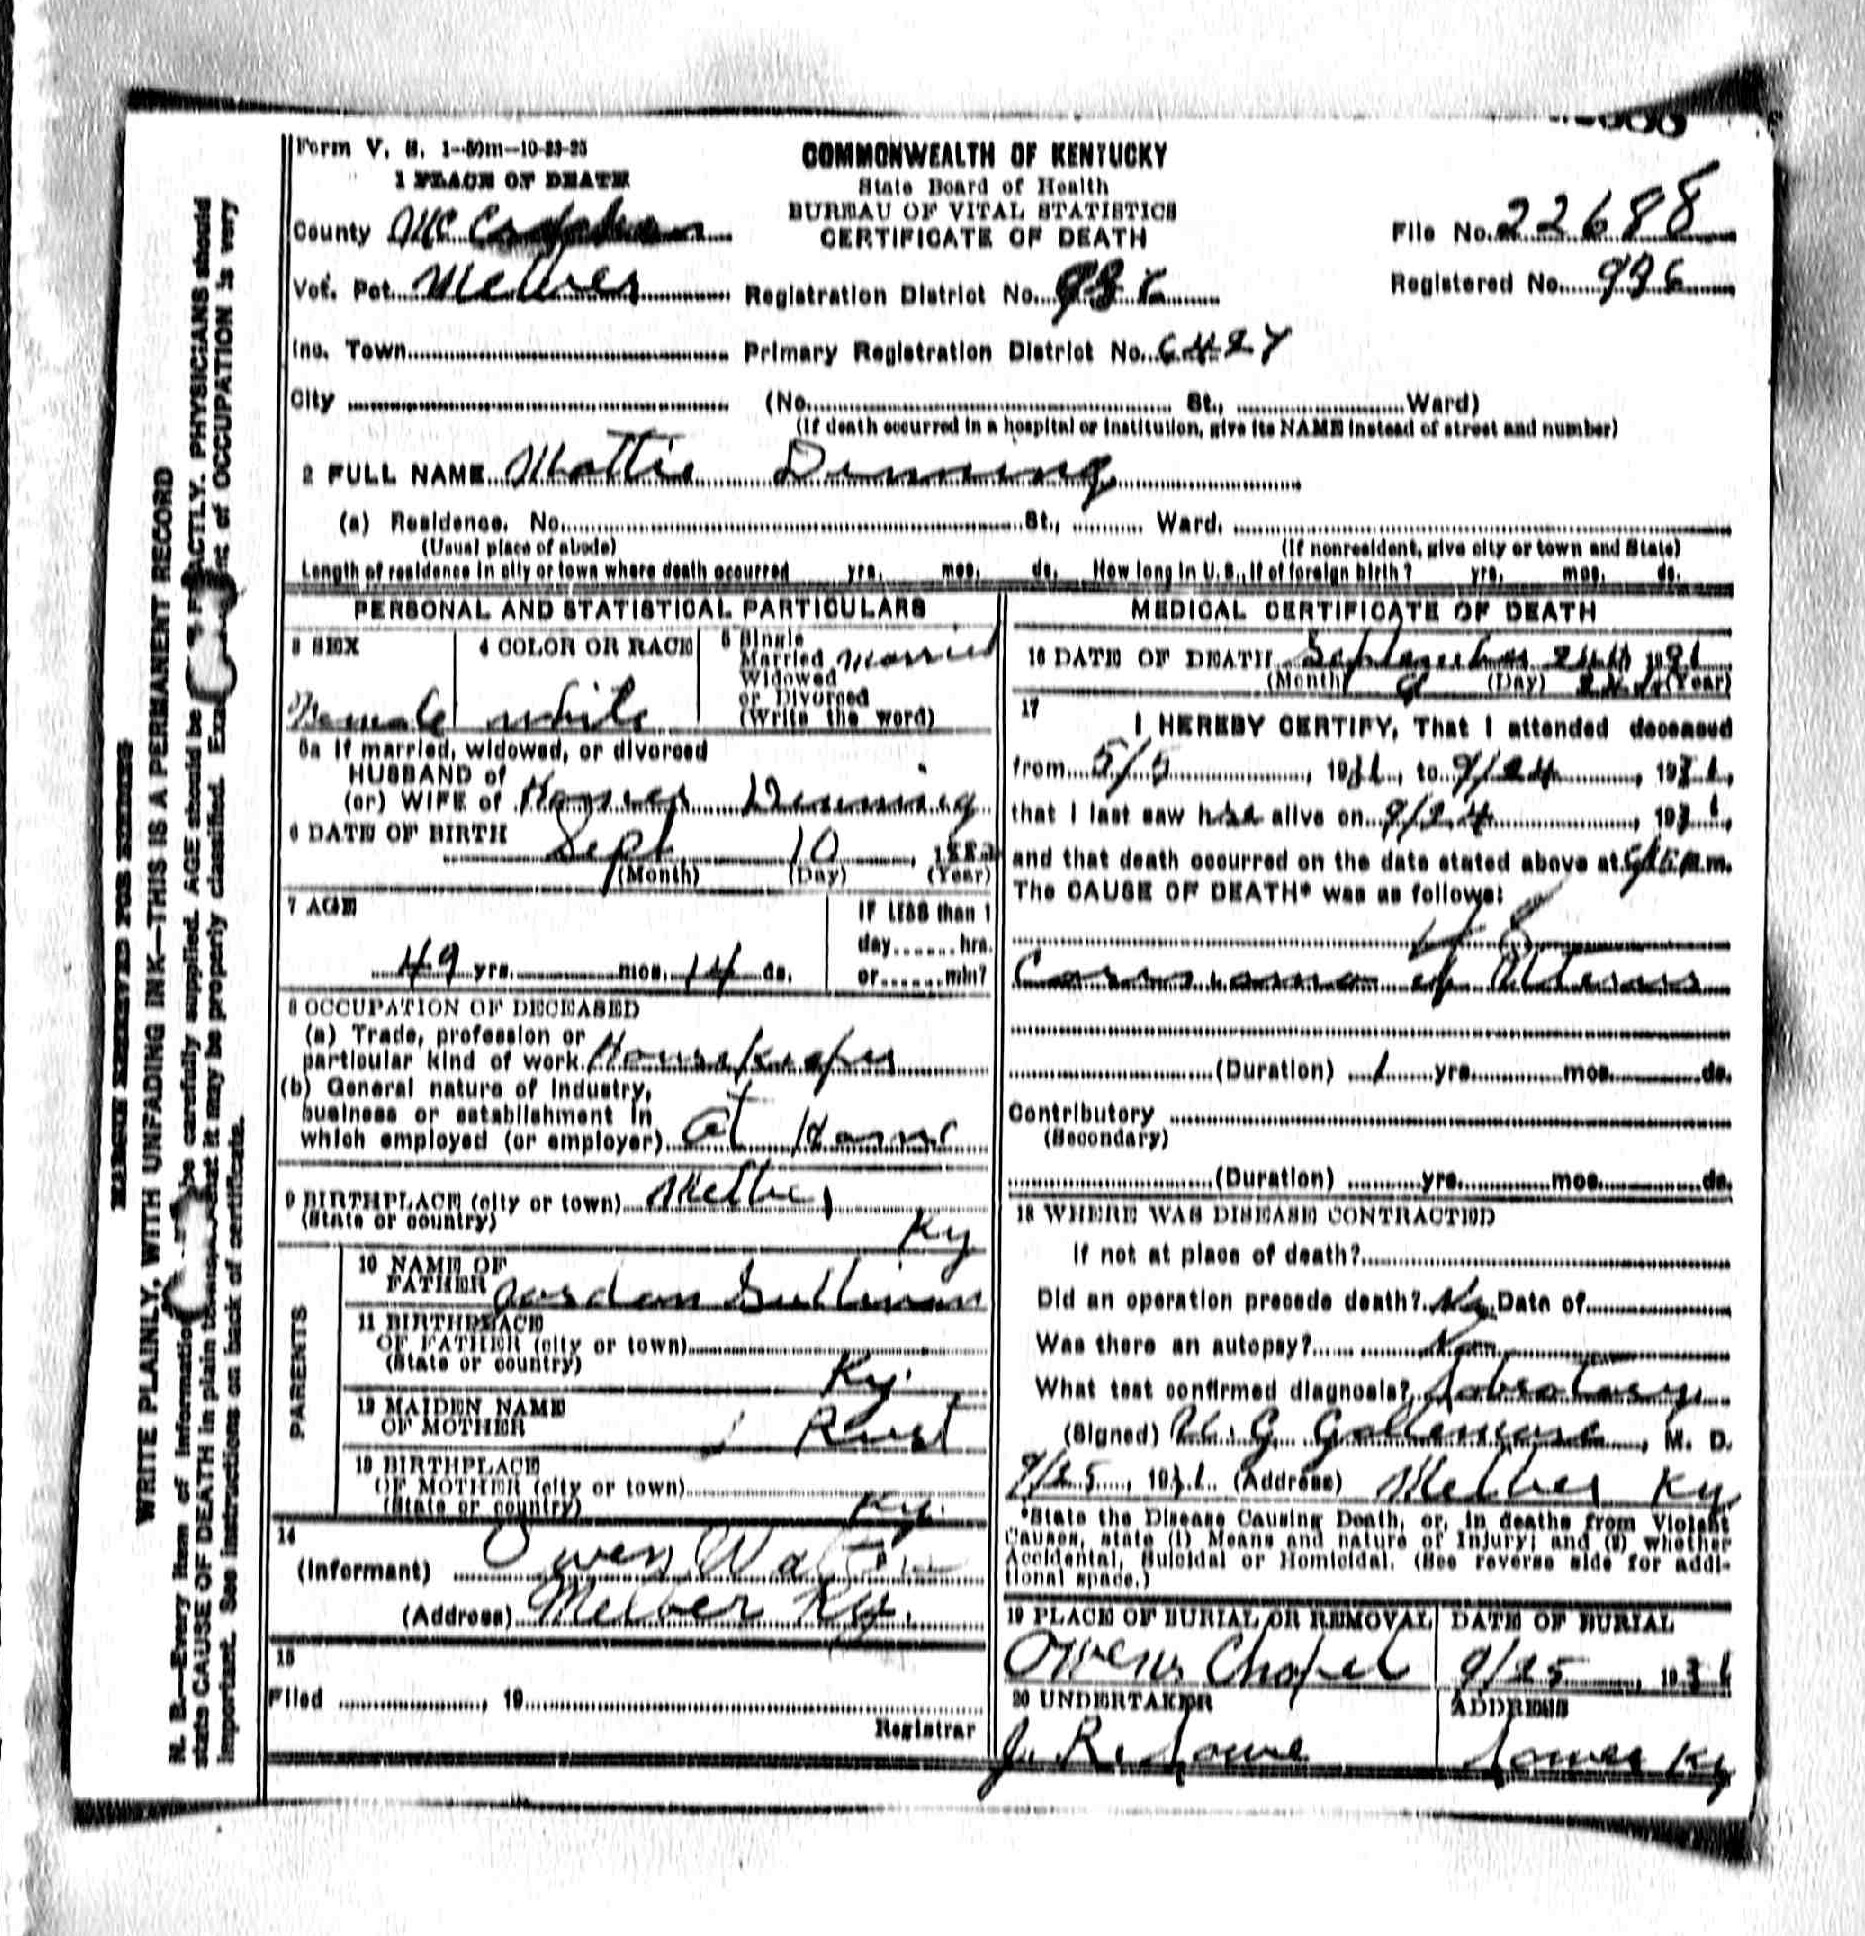 Form V. S. 1-50m-10-23-25
COMMONWEALTH OF KENTUCKY
State Board of Health
BUREAU OF VITAL STATISTICS
CERTIFICATE OF DEATH
1 PLACE OF DEATH
County McCracken
File No. 22688
Vot. Pct. Melber Registration District No.
Registered No. 996
Inc. Town Primary Registration District No. 6427
City (No. St., Ward)
(If death occurred in a hospital or institution, give its NAME instead of street and number)
2 FULL NAME Mattie Denning
(a) Residence. No. St., Ward.
(Usual place of abode) (If nonresident, give city or town and State)
Length of residence in city or town where death occurred yrs. mos. ds. How long in U. S., if of foreign birth? yrs. mos. ds.
PERSONAL AND STATISTICAL PARTICULARS
3 SEX
Female
4 COLOR OR RACE
white
5 Single
Married
Widowed
or Divorced
(Write the word)
Married
5a If married, widowed, or divorced
HUSBAND of
(or) WIFE of Homer Denning
6 DATE OF BIRTH
Sept 10, 1882
(Month) (Day) (Year)
7 AGE
49 yrs. mos. 14 ds.
IF LESS than 1
day hrs.
or min?
8 OCCUPATION OF DECEASED
(a) Trade, profession or
particular kind of work Housekeeper
(b) General nature of Industry,
business or establishment in
which employed (or employer) at Home
9 BIRTHPLACE (city or town) Melber,
(State or country) Ky
PARENTS
10 NAME OF
FATHER Jordan Sullivan
11 BIRTHPLACE
OF FATHER (city or town)
(State or country) Ky.
12 MAIDEN NAME
OF MOTHER Rust
13 BIRTHPLACE
OF MOTHER (city or town)
(State or country) Ky.
14
(Informant) Owen
(Address) Melber Ky.
15
Filed , 19
Registrar
MEDICAL CERTIFICATE OF DEATH
16 DATE OF DEATH September 24th 1931
(Month) (Day) (Year)
17
I HEREBY CERTIFY, That I attended deceased
from 5/5, 1931, to 9/24, 1931,
that I last saw her alive on 9/24, 1931,
and that death occurred on the date stated above at m.
The CAUSE OF DEATH* was as follows:
48
Carcinoma of Uterus
(Duration) 1 yrs. mos. ds.
Contributory
(Secondary)
(Duration) yrs. mos. ds.
18 WHERE WAS DISEASE CONTRACTED
If not at place of death?
Did an operation precede death? No Date of
Was there an autopsy?
What test confirmed diagnosis?
(Signed) G , M. D.
9/25, 1931. (Address) Melber Ky
*State the Disease Causing Death, or, in deaths from Violent
Causes, state (1) Means and nature of Injury; and (2) whether
Accidental, Suicidal or Homicidal. (See reverse side for addi-
tional space.)
19 PLACE OF BURIAL OR REMOVAL
Owens Chapel
DATE OF BURIAL
9/25, 1931
20 UNDERTAKER
J. R. Lowe
ADDRESS
Lowes Ky
MARGIN RESERVED FOR BINDING
WRITE PLAINLY, WITH UNFADING INK—THIS IS A PERMANENT RECORD
N. B.—Every item of information be carefully supplied. AGE should be ACTLY. PHYSICIANS should
state CAUSE OF DEATH in plain terms, that it may be properly classified. of OCCUPATION is very
important. See instructions on back of certificate.